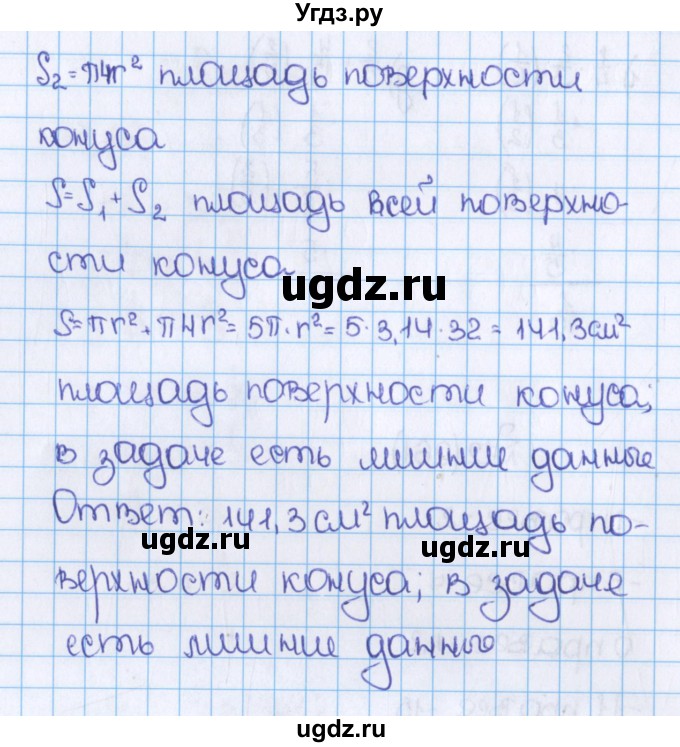 Угдз.ру
S₂=π4r² площадь поверхности
конуса
S=S₁+S₂ площадь всей поверхно-
сти конуса
ugdz.ru
S=πr²+π4r²=5π·r²=5·3,14·32=141,3см²
площадь поверхности конуса;
в задаче есть лишние данные
Ответ: 141,3см² площадь по-
ugdz.ru ugdz.ru
верхности конуса; в задаче
есть лишние данные
ugdz.ru